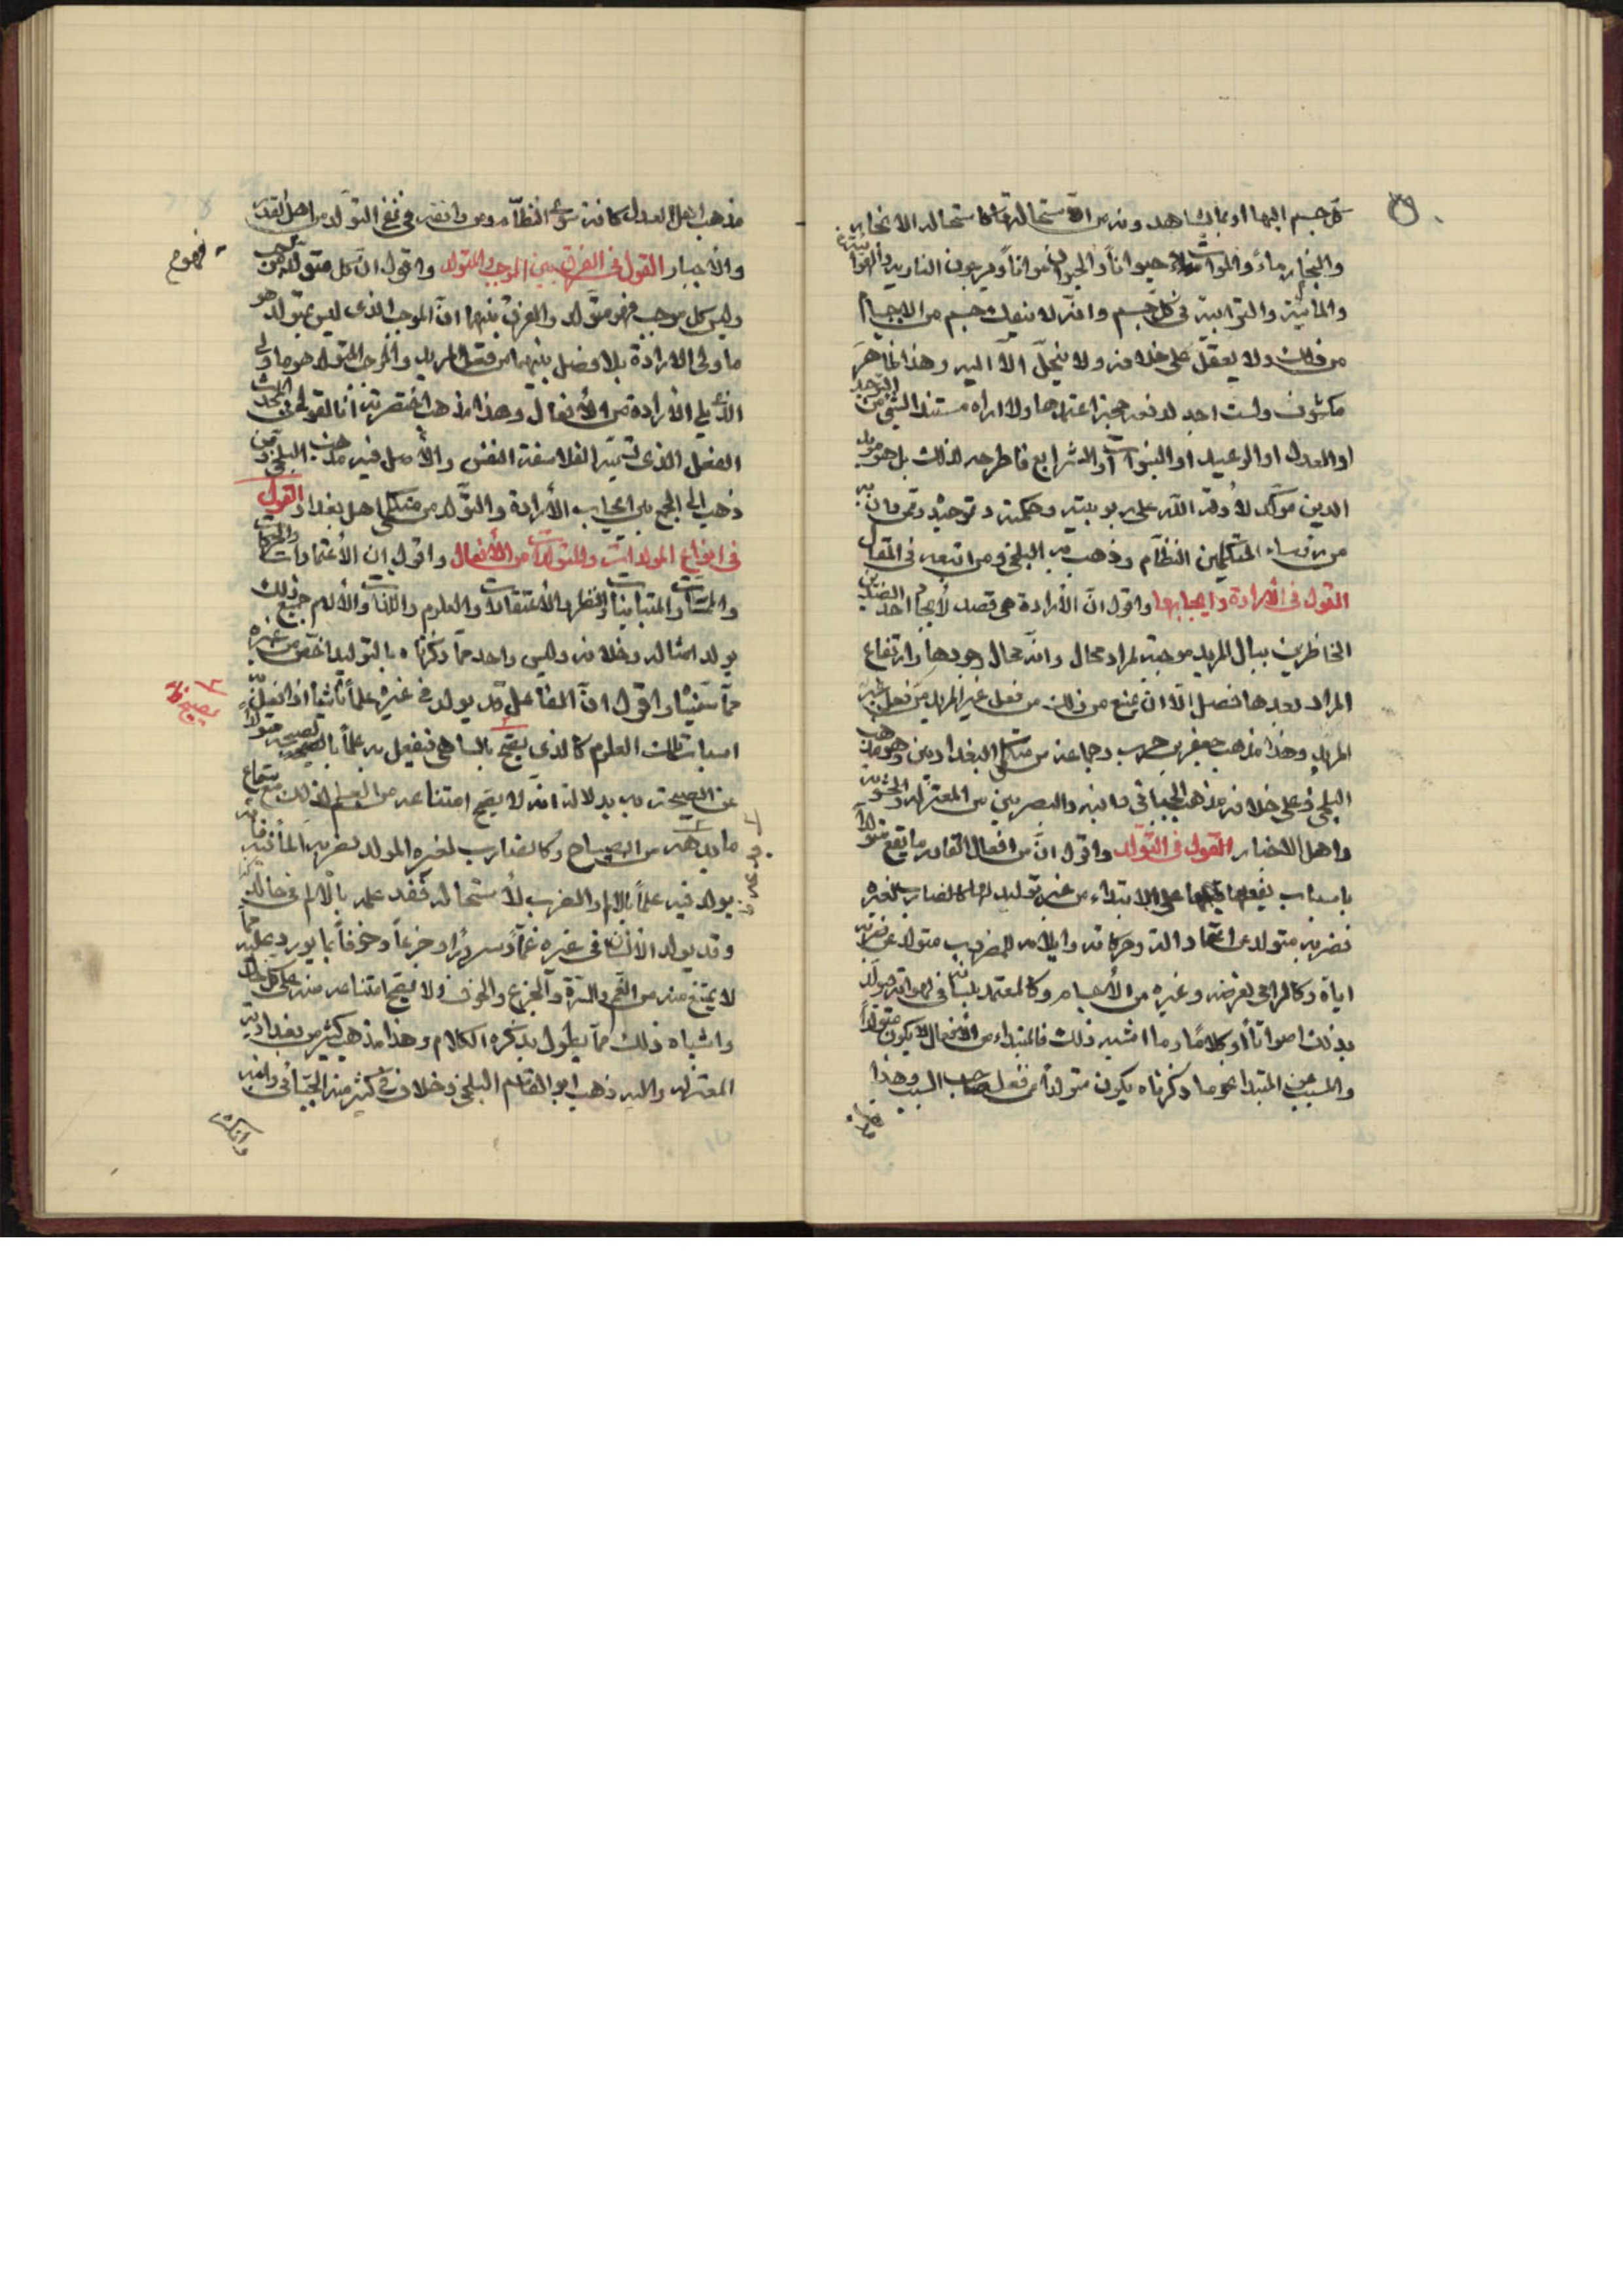 كل جسم إليها أو بما يشاهدونه من استحالتها كاستحالة
والبخار ماء والموات حيوانا والحيوان مواتا وبوجود النارية والهوائية
والمائية والترابية في كل جسم وانه لا ينفك جسم من الاجسام
من ذلك ولا يعقل على خلافه ولا ينحل الا اليه وهذا ظاهر
مكشوف ولست اجد لدفعه حجة اعتمدها ولا اراه مفسدا لشيء من التوحيد
او العدل او الوعيد او النبوات او الشرايع فاطرحه لذلك بل هو مؤيد
الدين مؤكد لأدلة الله على ربوبيته وحكمته وتوحيده وممن دان به
من رؤساء المتكلمين النظام وذهب اليه البلخي ومن اتبعه في المقال
القول في الأرادة وايجابها واقول ان الأرادة هي قصد لأيجاد احد الضدين
الخاطرين ببال المريد موجبة لمرادها وانه محال وجودها وارتفاع
المراد بعدها بفصل الا ان يمنع من ذلك من فعل غير المريد
المريد وهذا مذهب جعفر بن حرب وجماعة من متكلمي البغداديين وهو مذهب
البلخي وعلى خلافه مذهب الجبائي وابنه والبصريين من المعتزلة والحشوية
واهل الاخبار القول في التولد واقول ان من افعال القادر ما يقع متولدا
باسباب يفعلها على الابتداء من غير توليد لها كالضارب لغيره
فضربه متولد عن اعتماداته وحركاته وايلامه للمضروب متولد عن ضربه
اياه وكالرامي لغرضه وغيره من الأجسام وكالمعتمد بلسانه في لهواته فيولد
بذلك اصواتا أو كلاما وما اشبه ذلك فالمبتداء من الأفعال لا يكون متولدا
والمسبب عن المبتدا نحو ما ذكرناه يكون متولدا من فعل صاحب السبب وهذا
مذهب اهل العدل كافة سوى النظام ومن وافقه في نفي التولد من اهل القدر
والأجبار القول في الفرق بين الموجب والمتولد واقول ان كل متولد موجب
وليس كل موجب فهو متولد والفرق بينهما ان الموجب الذي ليس بمتولد هو
ما ولي الارادة بلا فصل بينهما من فعل المريد والموجب المتولد هو ما ولي
الذي يلي الأرادة من الأفعال وهذا مذهب اختصرته انا لقولي في المحدث
الفعل الذي تسميه الفلاسفة النفس والأصل فيه مذهب البلخي ومن
ذهب الى الجمع بين ايجاب الأرادة والتولد من متكلمي اهل بغداد القول
في انواع المولدات والمتولدات من الأفعال واقول ان الأعتمادات والحركات
والمماسات والمتباينات والنظر والأعتقادات والعلوم واللذات والألام جميع ذلك
يولد امثاله وخلافه وليس واحد مما ذكرناه بالتوليد اخص من غيره
مما سميناه واقول ان الفاعل قد يولد في غيره علما باشياء اذا فعل به
اسباب تلك العلوم كالذي يصيح بالساهي فيفعل به علما بالصيحة متولدا
عن الصيحة به بدلالة انه لا يصح امتناعه من العلم بذلك مع سماع
ما بدهه من الصياح وكالضارب لغيره المولد لضربه الما فيه فانه
يولد فيه علما بالألم والضرب لأستحالة فقد علمه بالألم في حاله
وقد يولد الانسان في غيره غما وسرورا وجزعا وخوفا بما يورده عليه مما
لا يمتنع منه من الغم والمسرة والجزع والخوف ولا يصح امتناعه منه على كل حال
واشباه ذلك مما يطول بذكره الكلام وهذا مذهب كثير من بغدادية
المعتزلة واليه ذهب ابو القاسم البلخي وخلاف في كثير منه الجبائي وابنه